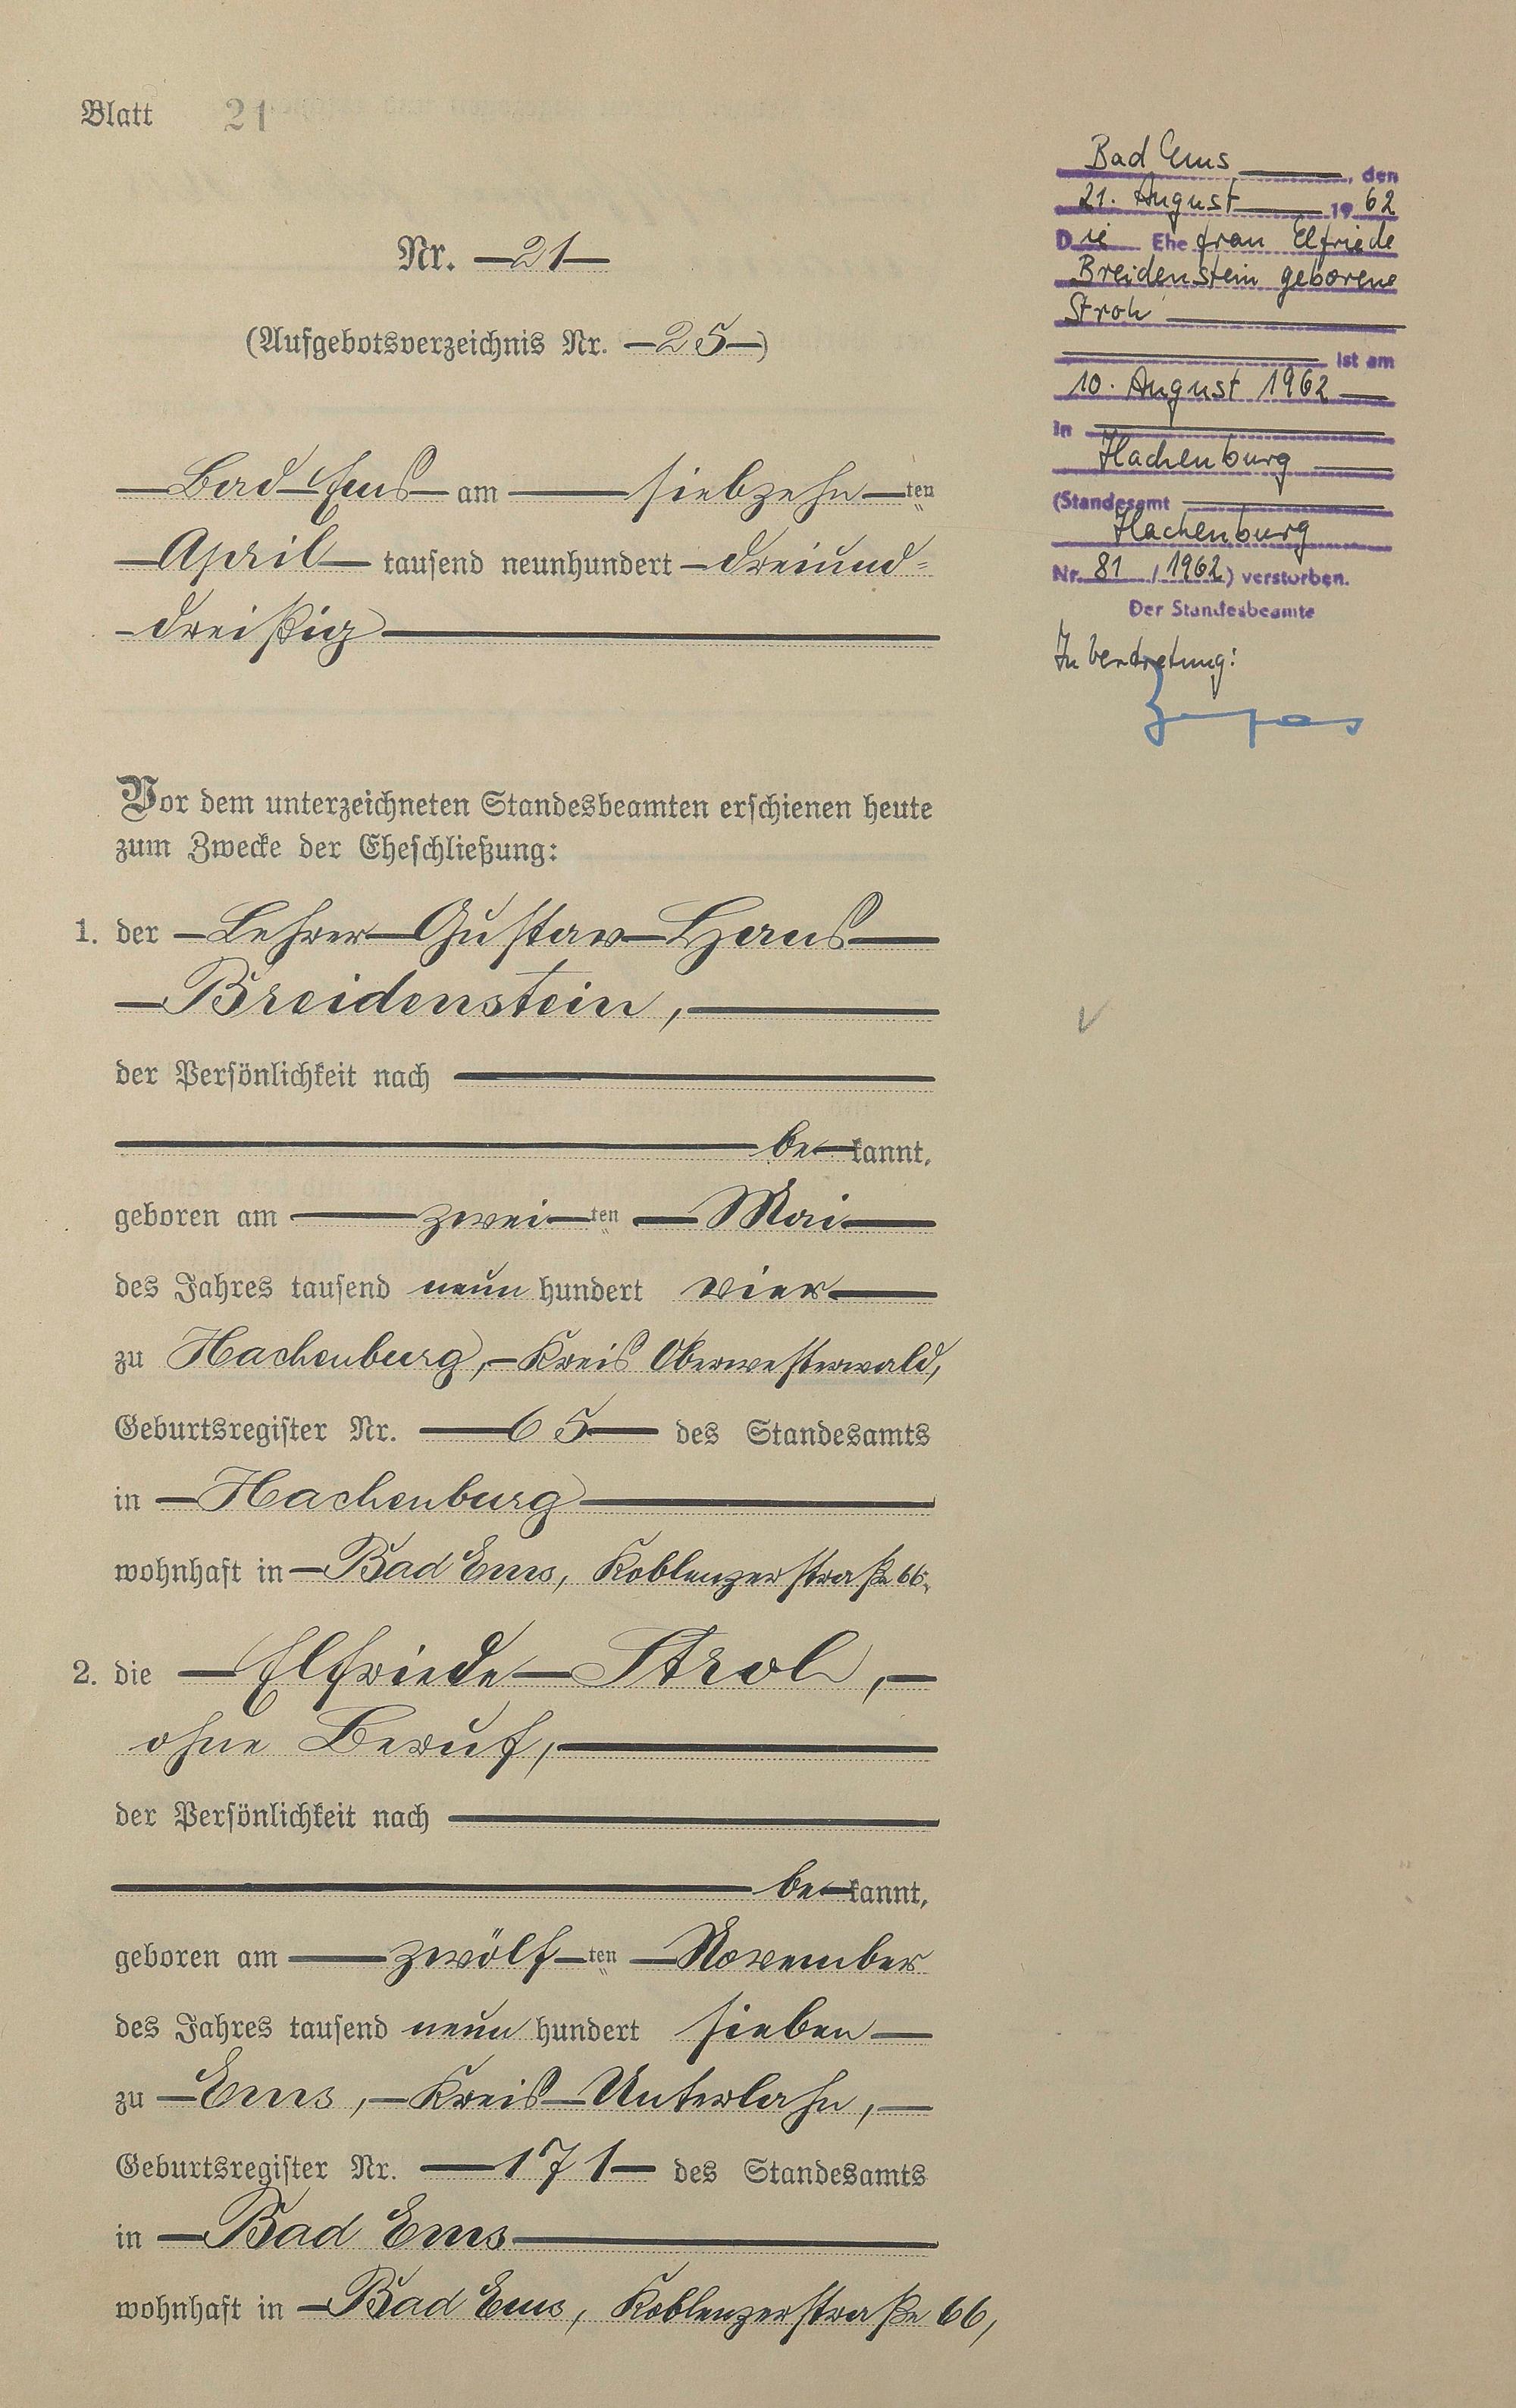 Blatt 21
Nr. 21
(Aufgebotsverzeichnis Nr. 25)
Bad Ems am siebzehnten
April tausend neunhundert dreiund=
dreißig
Vor dem unterzeichneten Standesbeamten erschienen heute
zum Zwecke der Eheschließung:
1. der Lehrer Gustav Hans
Breidenstein,
der Persönlichkeit nach
bekannt,
geboren am zweiten Mai
des Jahres tausend neun hundert vier
zu Hachenburg, Kreis Oberwesterwald,
Geburtsregister Nr. 65 des Standesamts
in Hachenburg
wohnhaft in Bad Ems, Koblenzerstraße 66,
2. die Elfriede Stroh,
ohne Beruf,
der Persönlichkeit nach
bekannt,
geboren am zwölften November
des Jahres tausend neun hundert sieben
zu Ems, Kreis Unterlahn,
Geburtsregister Nr. 171 des Standesamts
in Bad Ems
wohnhaft in Bad Ems, Koblenzerstraße 66,
Bad Ems, den
21. August 1962
Die Ehefrau Elfriede
Breidenstein geborene
Stroh
ist am
10. August 1962
in
Hachenburg
(Standesamt
Hachenburg
Nr. 81 / 1962) verstorben.
Der Standesbeamte
In Vertretung: